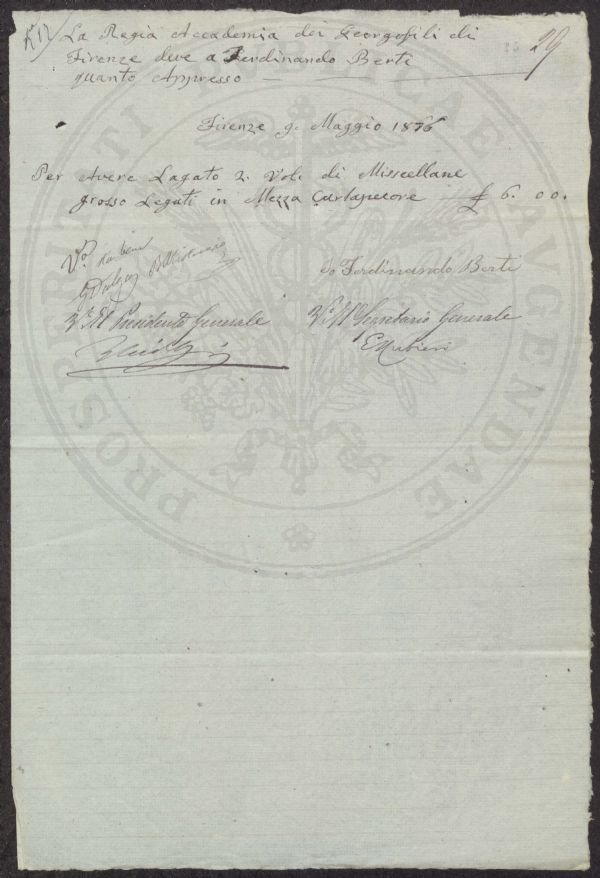 N° 12
La Regia Accademia dei Georgofili di
Firenze deve a Ferdinando Berti
quanto Appresso
29
Firenze 9. Maggio 1876
Per Avere Lagato 2. Voli di Misscellane
grosso Legati in Mezza Cartapecore £ 6. 00.
V°. va bene
Bibliotecario
Io Ferdinando Berti
V° Il Presidente Generale
V° Il Segretario Generale
E Rubieri
PROSPERITATI PUBLICAE AUGENDAE